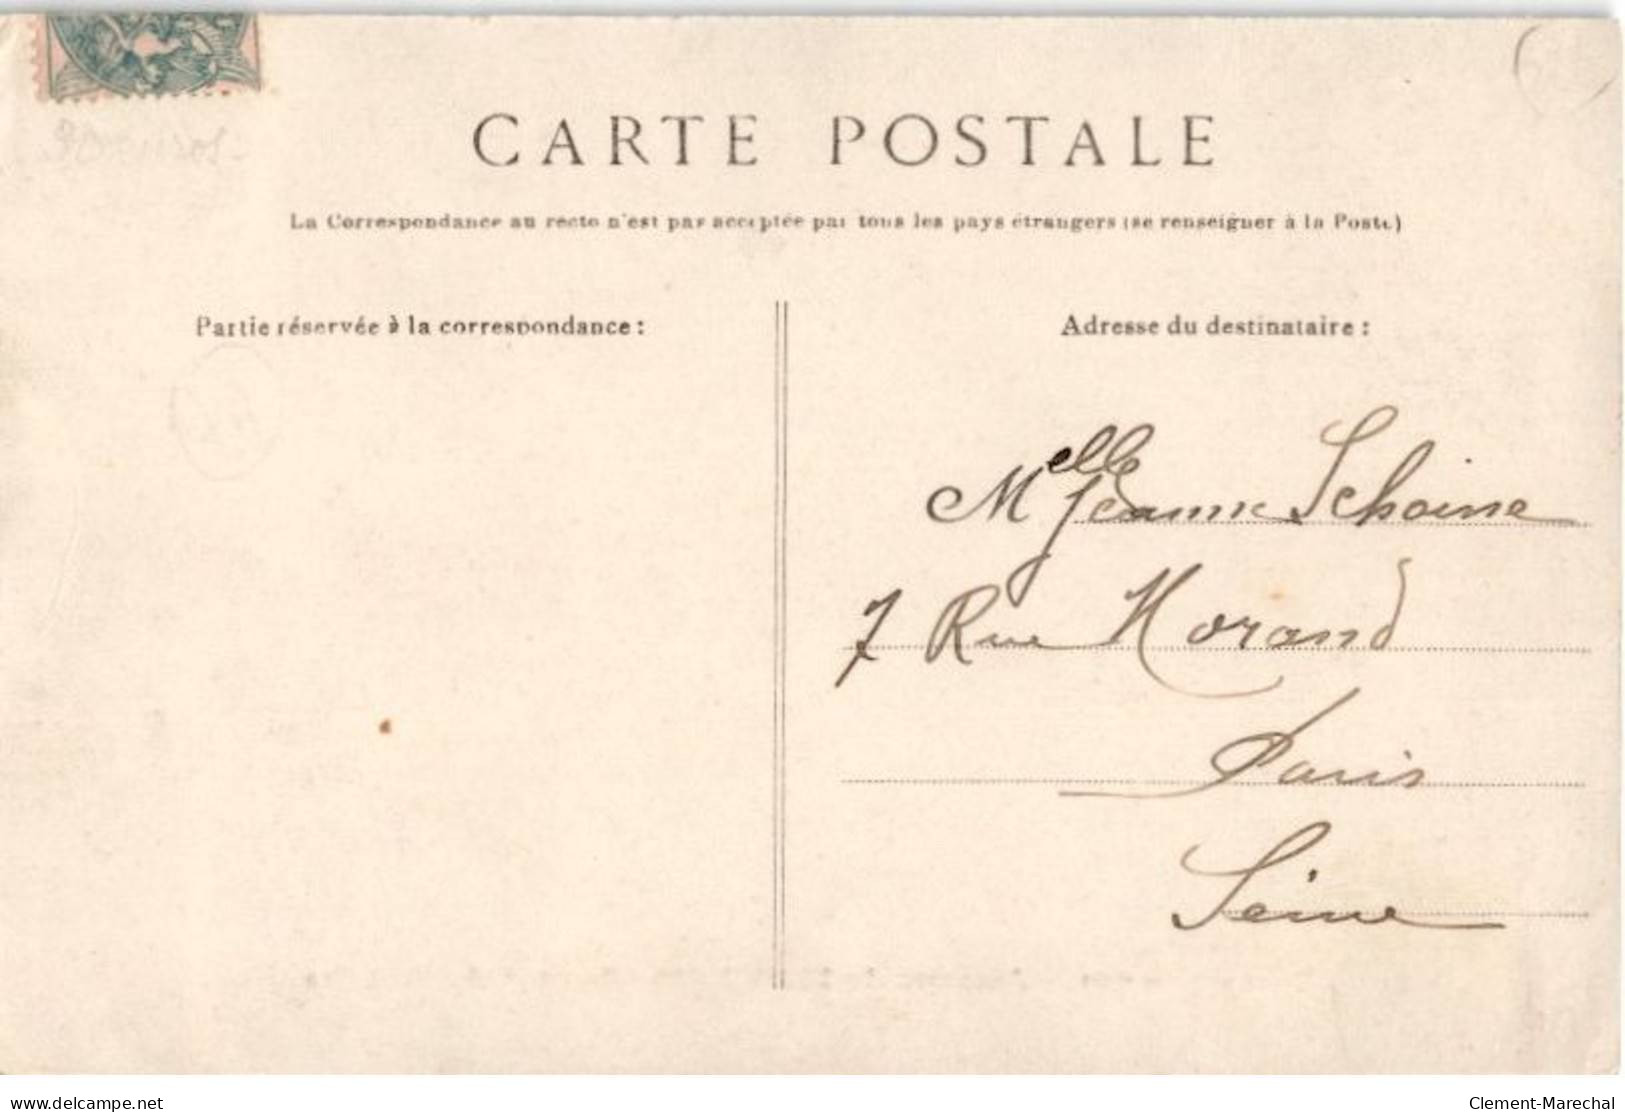 CARTE POSTALE
La Correspondance au recto n'est pas acceptée par tous les pays étrangers (se renseigner à la Poste)
Partie réservée à la correspondance :
Adresse du destinataire :
Melle Jeanne Schoine
7 Rue Morand
Paris
Seine
delcampe.net
Clement-Marechal